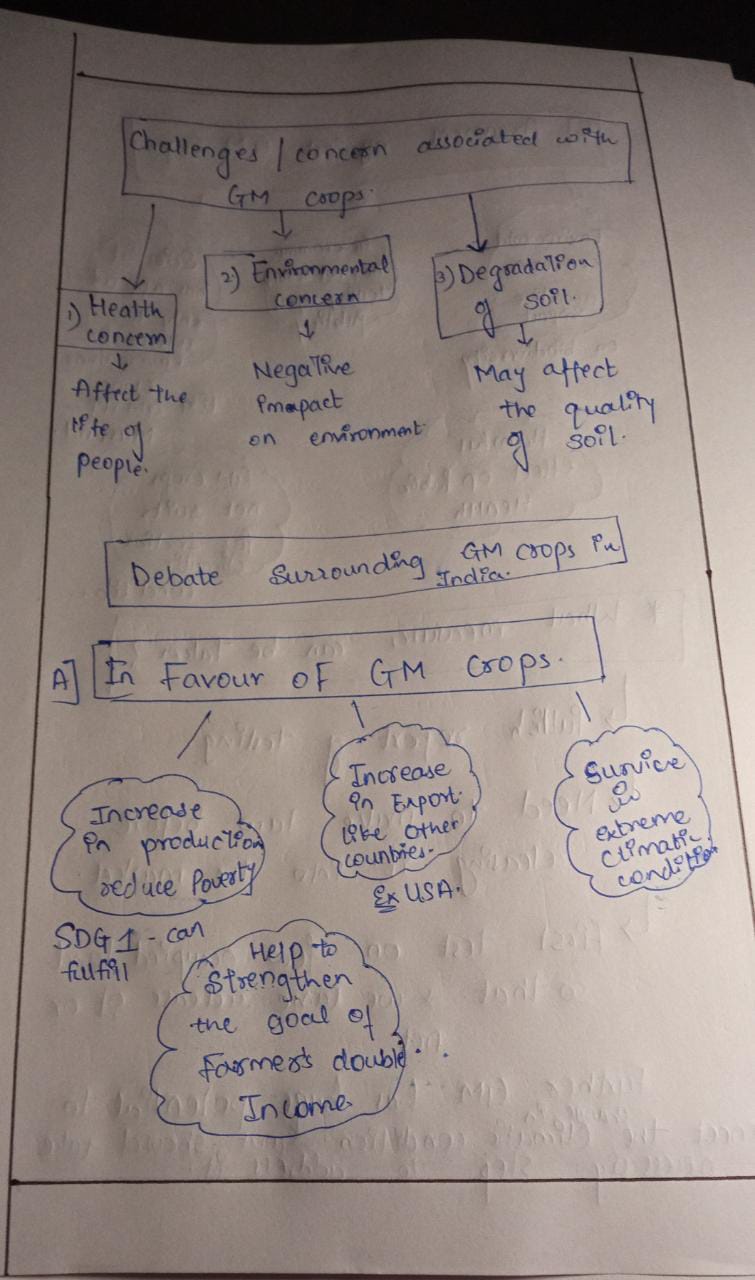 Challenges / concern associated with
GM crops.
1) Health
concern
Affect the
life of
people.
2) Environmental
concern
Negative
imapact
on environment
3) Degradation
of soil.
May affect
the quality
of soil.
Debate Surrounding GM crops in
India.
A] In Favour of GM Crops.
Increase
in production
reduce Poverty
SDG 1 - can
fulfill
Increase
in Export
like other
countries.
Ex USA.
Survice
in
extreme
climatic
condition
Help to
strengthen
the goal of
farmer's double
Income.